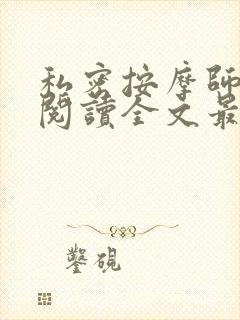 私密按摩師
閱讀全文最
鑿硯